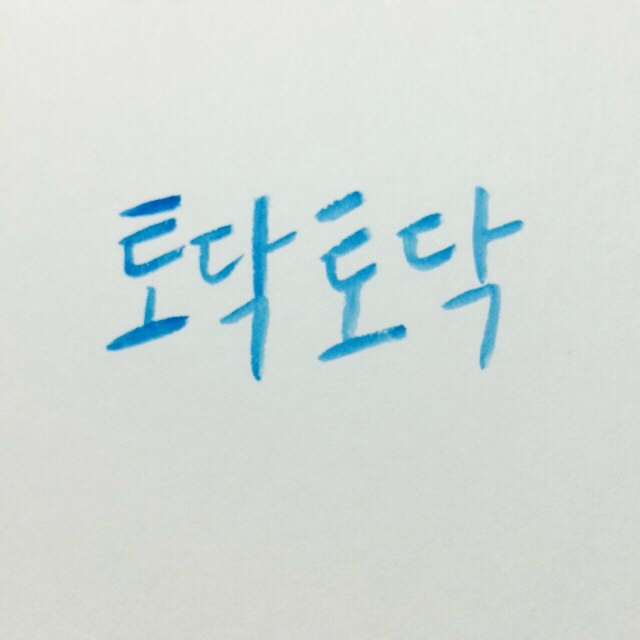 토닥토닥